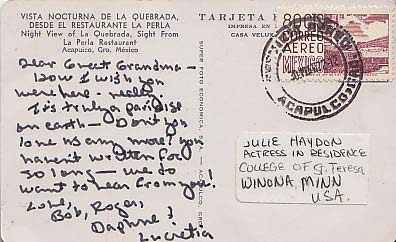 VISTA NOCTURNA DE LA QUEBRADA,
DESDE EL RESTAURANTE LA PERLA
Night View of La Quebrada, Sight From
La Perla Restaurant
Acapulco, Gro. México
TARJETA
IMPRESA EN
CASA VELUX
SUPER FOTO ECONOMICA, S.A. — ACAPULCO, GRO.
80 CTS
CORREO
AEREO
MEXICO
ACAPULCO
Dear Great Grandma —
How I wish you
were here - really.
It's truly a paradise
on earth — Don't you
love us any more? you
haven't written for
so long — we do
want to hear from you!
Love,
Bob, Roger,
Daphne &
Lucretia
JULIE HAYDON
ACTRESS IN RESIDENCE
COLLEGE OF St. Teresa
WINONA, MINN
USA.